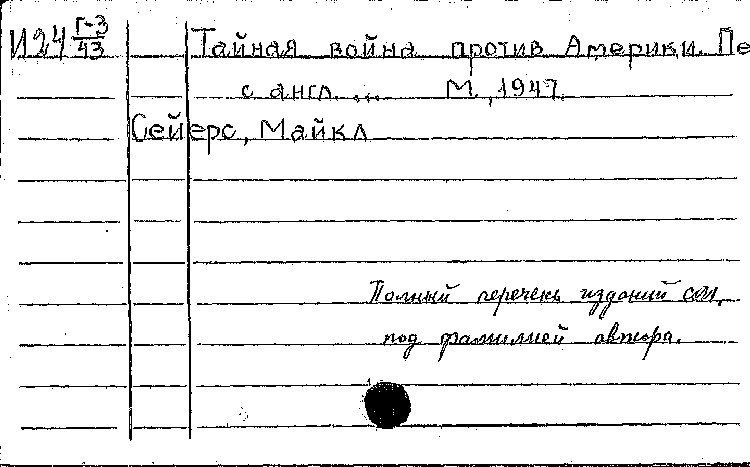 И24 Г-3/43 Тайная война против Америки. Пе
с англ. ... М., 1947.
Сейерс, Майкл
Полный перечень изданий см.
под фамилией автора.